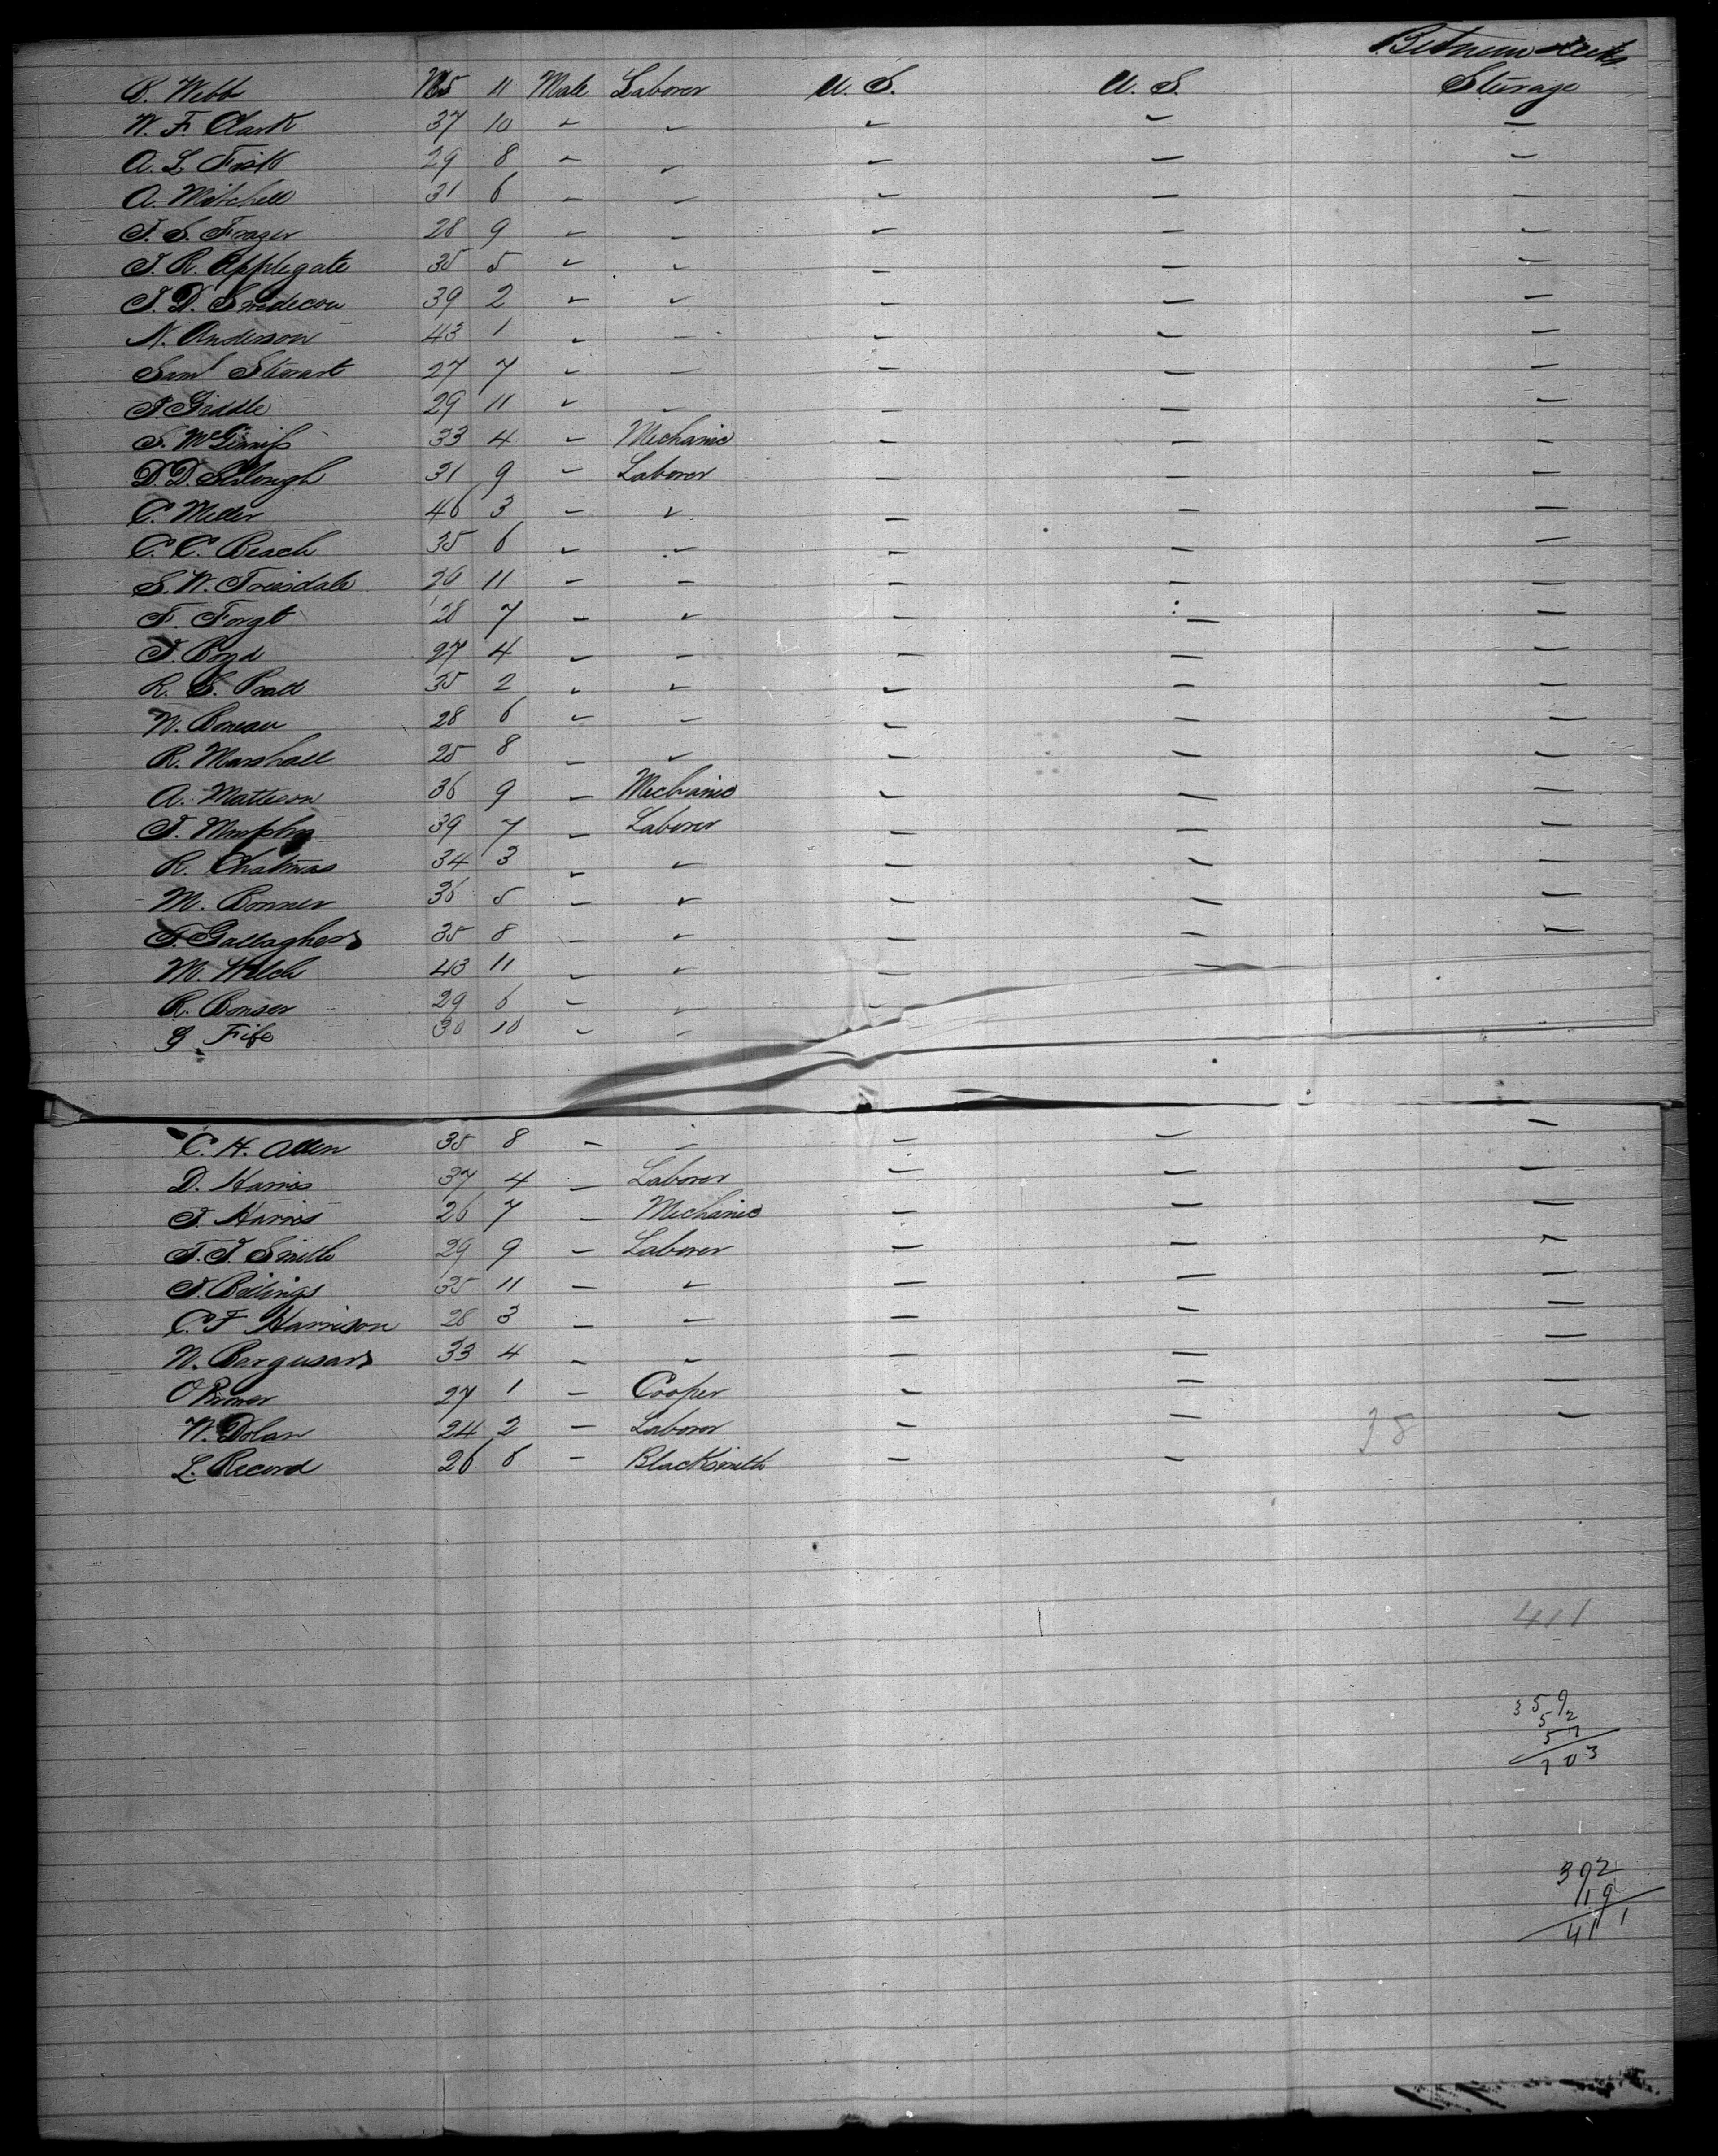 Between Decks
B. Webb 35 11 Male Laborer U. S. U. S. Sterage
W. F. Clark 37 10 " " " " "
A. L. Fisk 29 8 " " " " "
A. Mitchell 31 6 " " " " "
J. S. Frazer 28 9 " " " " "
J. R. Applegate 35 5 " " " " "
J. D. Snedecou 39 2 " " " " "
N. Anderson 43 1 " " " " "
Saml Stewart 27 7 " " " " "
J. Giddle 29 11 " " " " "
S. McGinnis 33 4 " Mechanic " " "
D. D. 31 9 " Laborer " " "
C. Meller 46 3 " " " " "
C. C. Beach 35 6 " " " " "
S. W. Truisdale 26 11 " " " " "
F. Forgt 28 7 " " " " "
J. Boyd 27 4 " " " " "
R. S. Pratt 35 2 " " " " "
N. Boneau 28 6 " " " " "
R. Marshall 25 8 " " " " "
A. Matteson 36 9 " Mechanic " " "
J. Murphy 39 7 " Laborer " " "
R. Chatmas 34 3 " " " " "
M. Bonner 36 5 " " " " "
T. Gallagher 35 8 " " " " "
M. Welch 43 11 " " " "
R. Bonser 29 6 " " "
G. Fife 30 10 " "
C. H. Allen 35 8 " " " " "
D. Harris 37 4 " Laborer " " "
J. Harris 26 7 " Mechanic " " "
T. J. Smith 29 9 " Laborer " " "
J. Billings 35 11 " " " " "
C. F Harrison 28 3 " " " " "
N. Bargusar 33 4 " " " " "
O 27 1 " Cooper " " "
W. Dolan 24 2 " Laborer " " "
L. Record 26 8 " Blacksmith " "
38
411
359
52
57
703
392
19
411